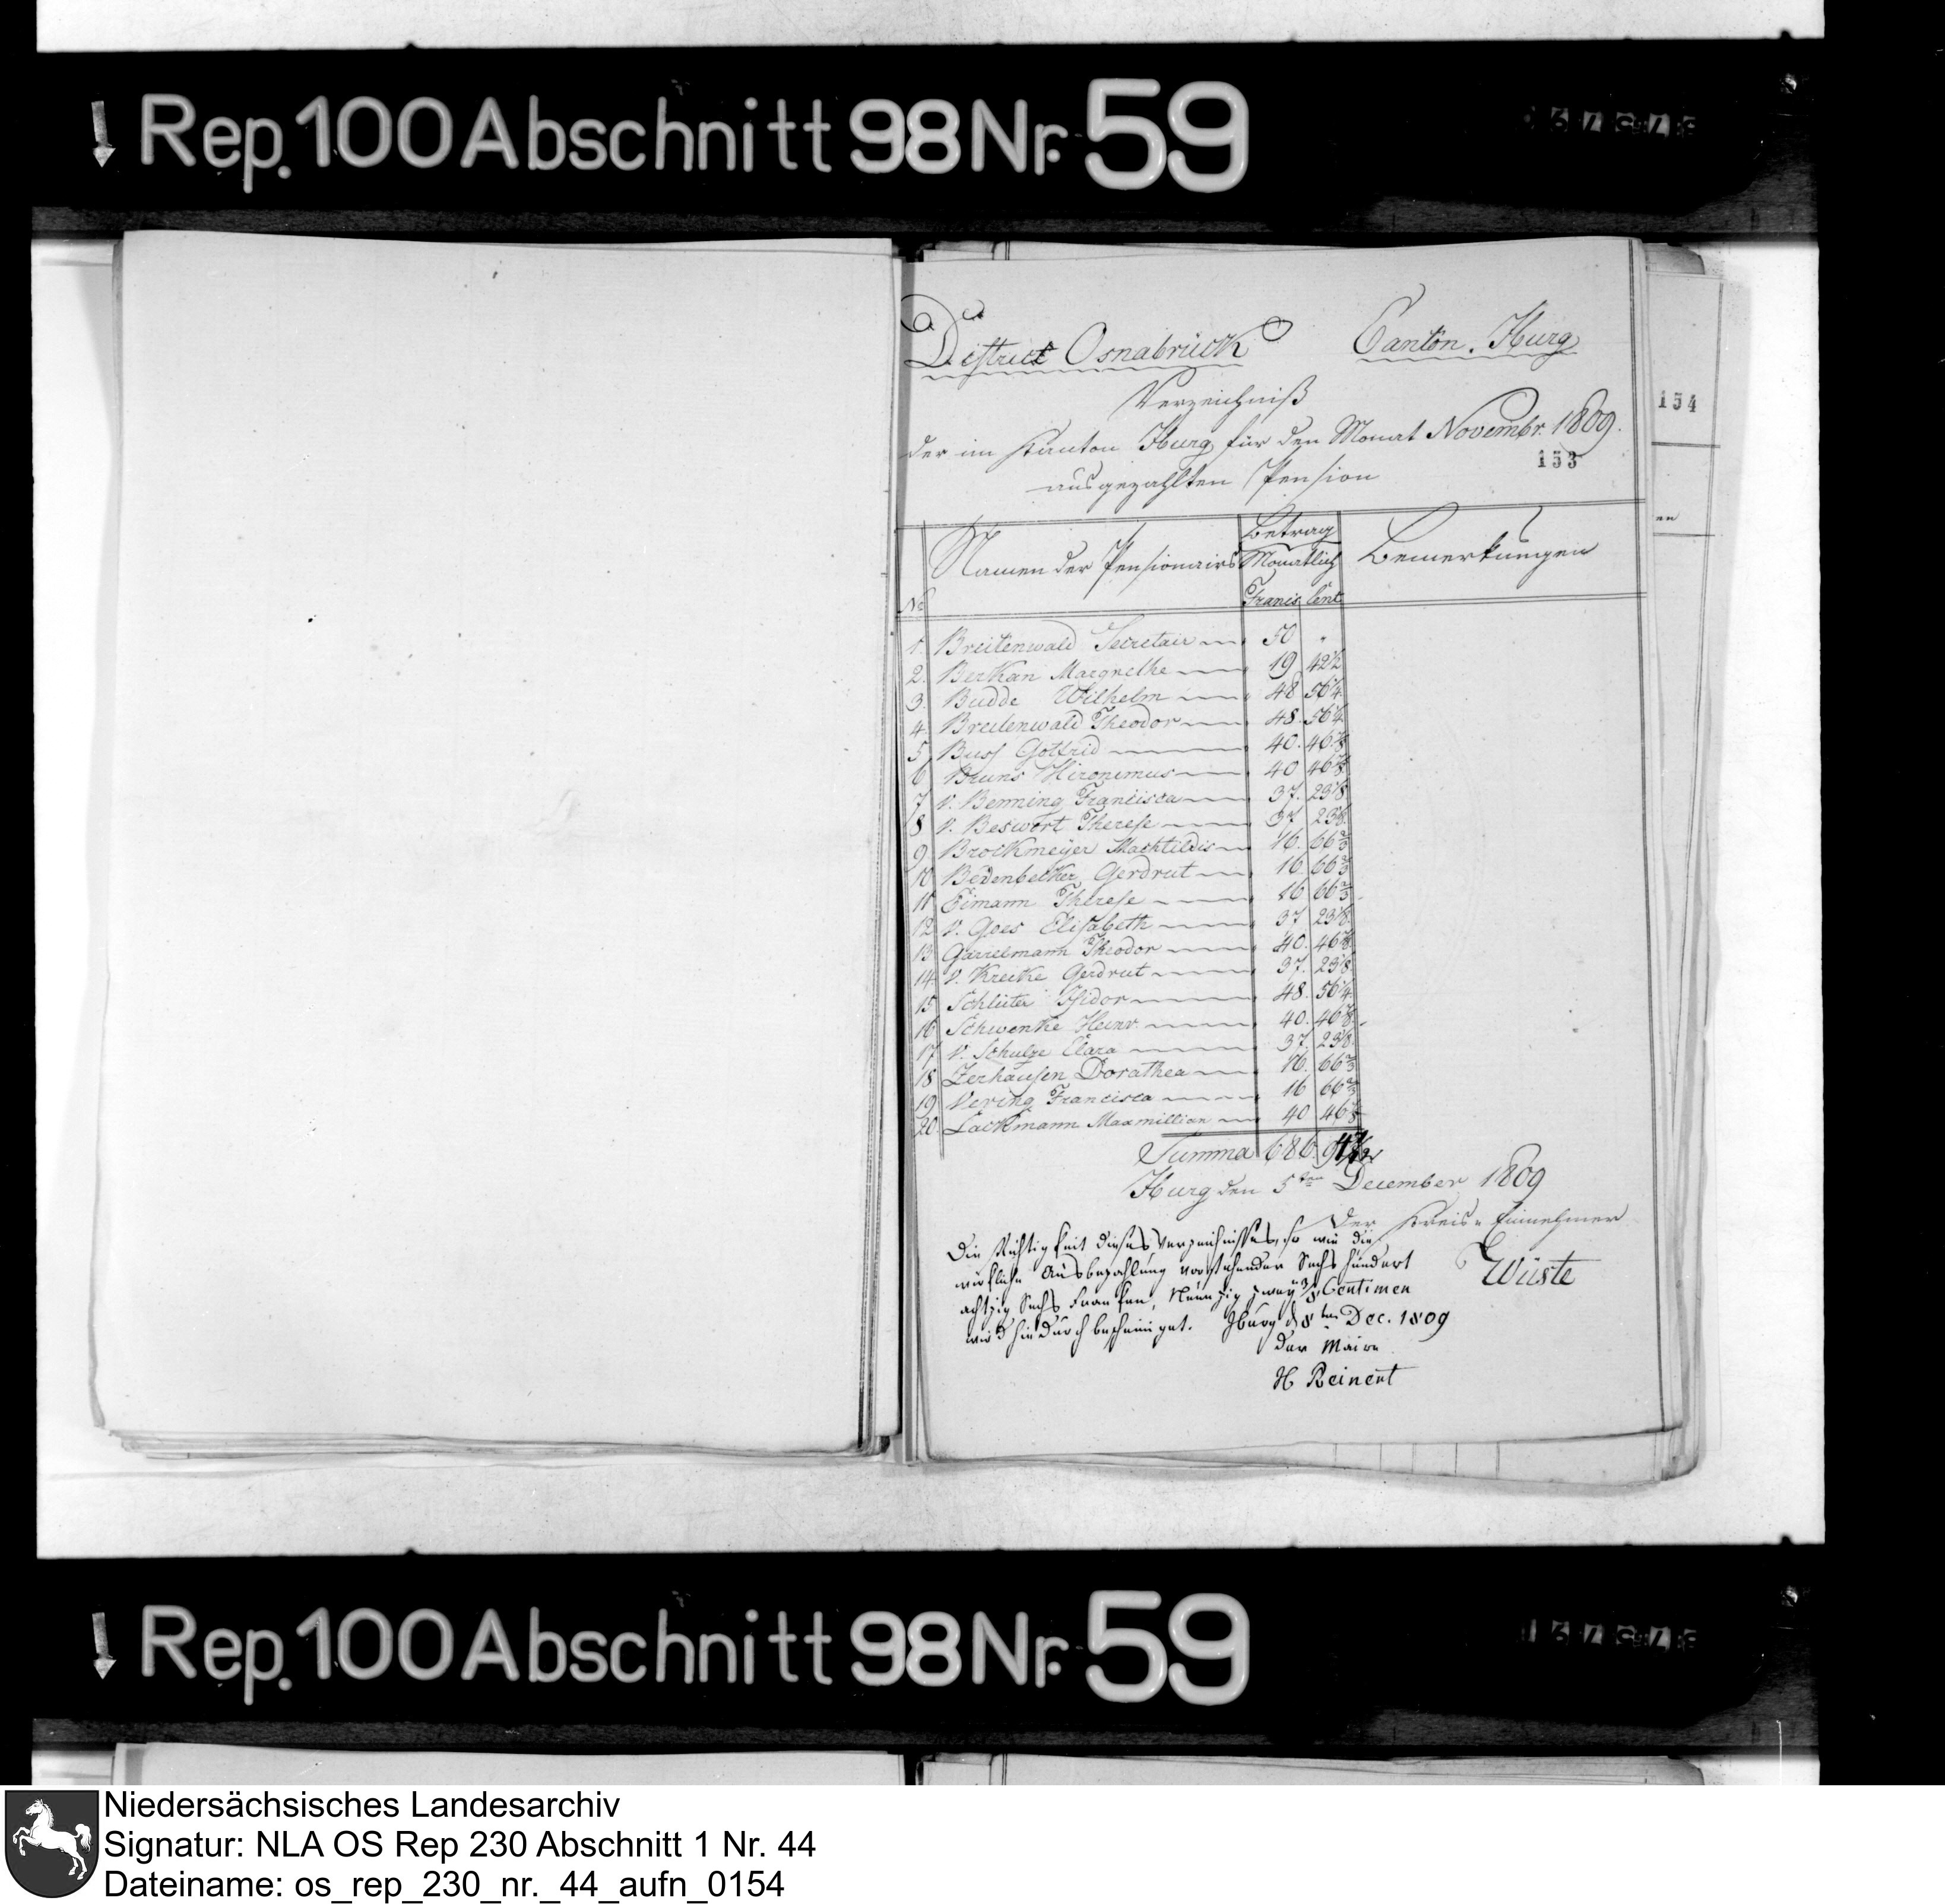 Rep. 100 Abschnitt 98 Nr. 59
District Osnabrück Canton Iburg
Verzeichniß
der im Kanton Iburg für den Monat Novembr. 1809.
ausgezahlten Pension
153
154
No Namen der Pensionairs Betrag Monatlich Francs Cent Bemerkungen
1. Breitenwald Secretair 50 "
2. Berkan Margrethe 19 42 1/2
3. Budde Wilhelm 48 56 1/4
4. Breitenwald Theodor 48. 56 1/4
5 Buss Gotfrid 40. 46 7/8
6 Bruns Hironimus 40 46 7/8
7 v. Benning Francisca 37. 23 1/8
8 v. Beswort Therese 37 23 1/8
9 Brockmeyer Machtildis 16. 66 2/3
10 Bedenbecker Gerdrut 16 66 2/3
11 Eimann Therese 16 66 2/3
12 v. Goes Elisabeth 37 23 1/8
13 Garrelmann Theodor 40. 46 7/8
14. v. Krecke Gerdrut 37. 23 1/8
15 Schlüter Isidor 48. 56 1/4
16 Schwenke Heinr. 40. 46 7/8
17 v. Schulze Clara 37. 23 1/8
18 Zerhausen Dorathea 16. 66 2/3
19 Vering Francisca 16 66 2/3
20. Lackmann Maxmillian 40 46 7/8
Summa 686.
Iburg den 5ten December 1809
Der Kreis-Einnehmer
Wüste
Die Richtigkeit dieses Verzeichnisses, so wie die
wirkliche Ausbezahlung vorstehender Sechs hundert
achtzig Sechs Franken, Neunzig zwey 3/8 Centimen
wird hiedurch bescheiniget. Iburg d 8ten Dec. 1809
Der Maire
H Reinert
Rep. 100 Abschnitt 98 Nr. 59
Niedersächsisches Landesarchiv
Signatur: NLA OS Rep 230 Abschnitt 1 Nr. 44
Dateiname: os_rep_230_nr._44_aufn_0154